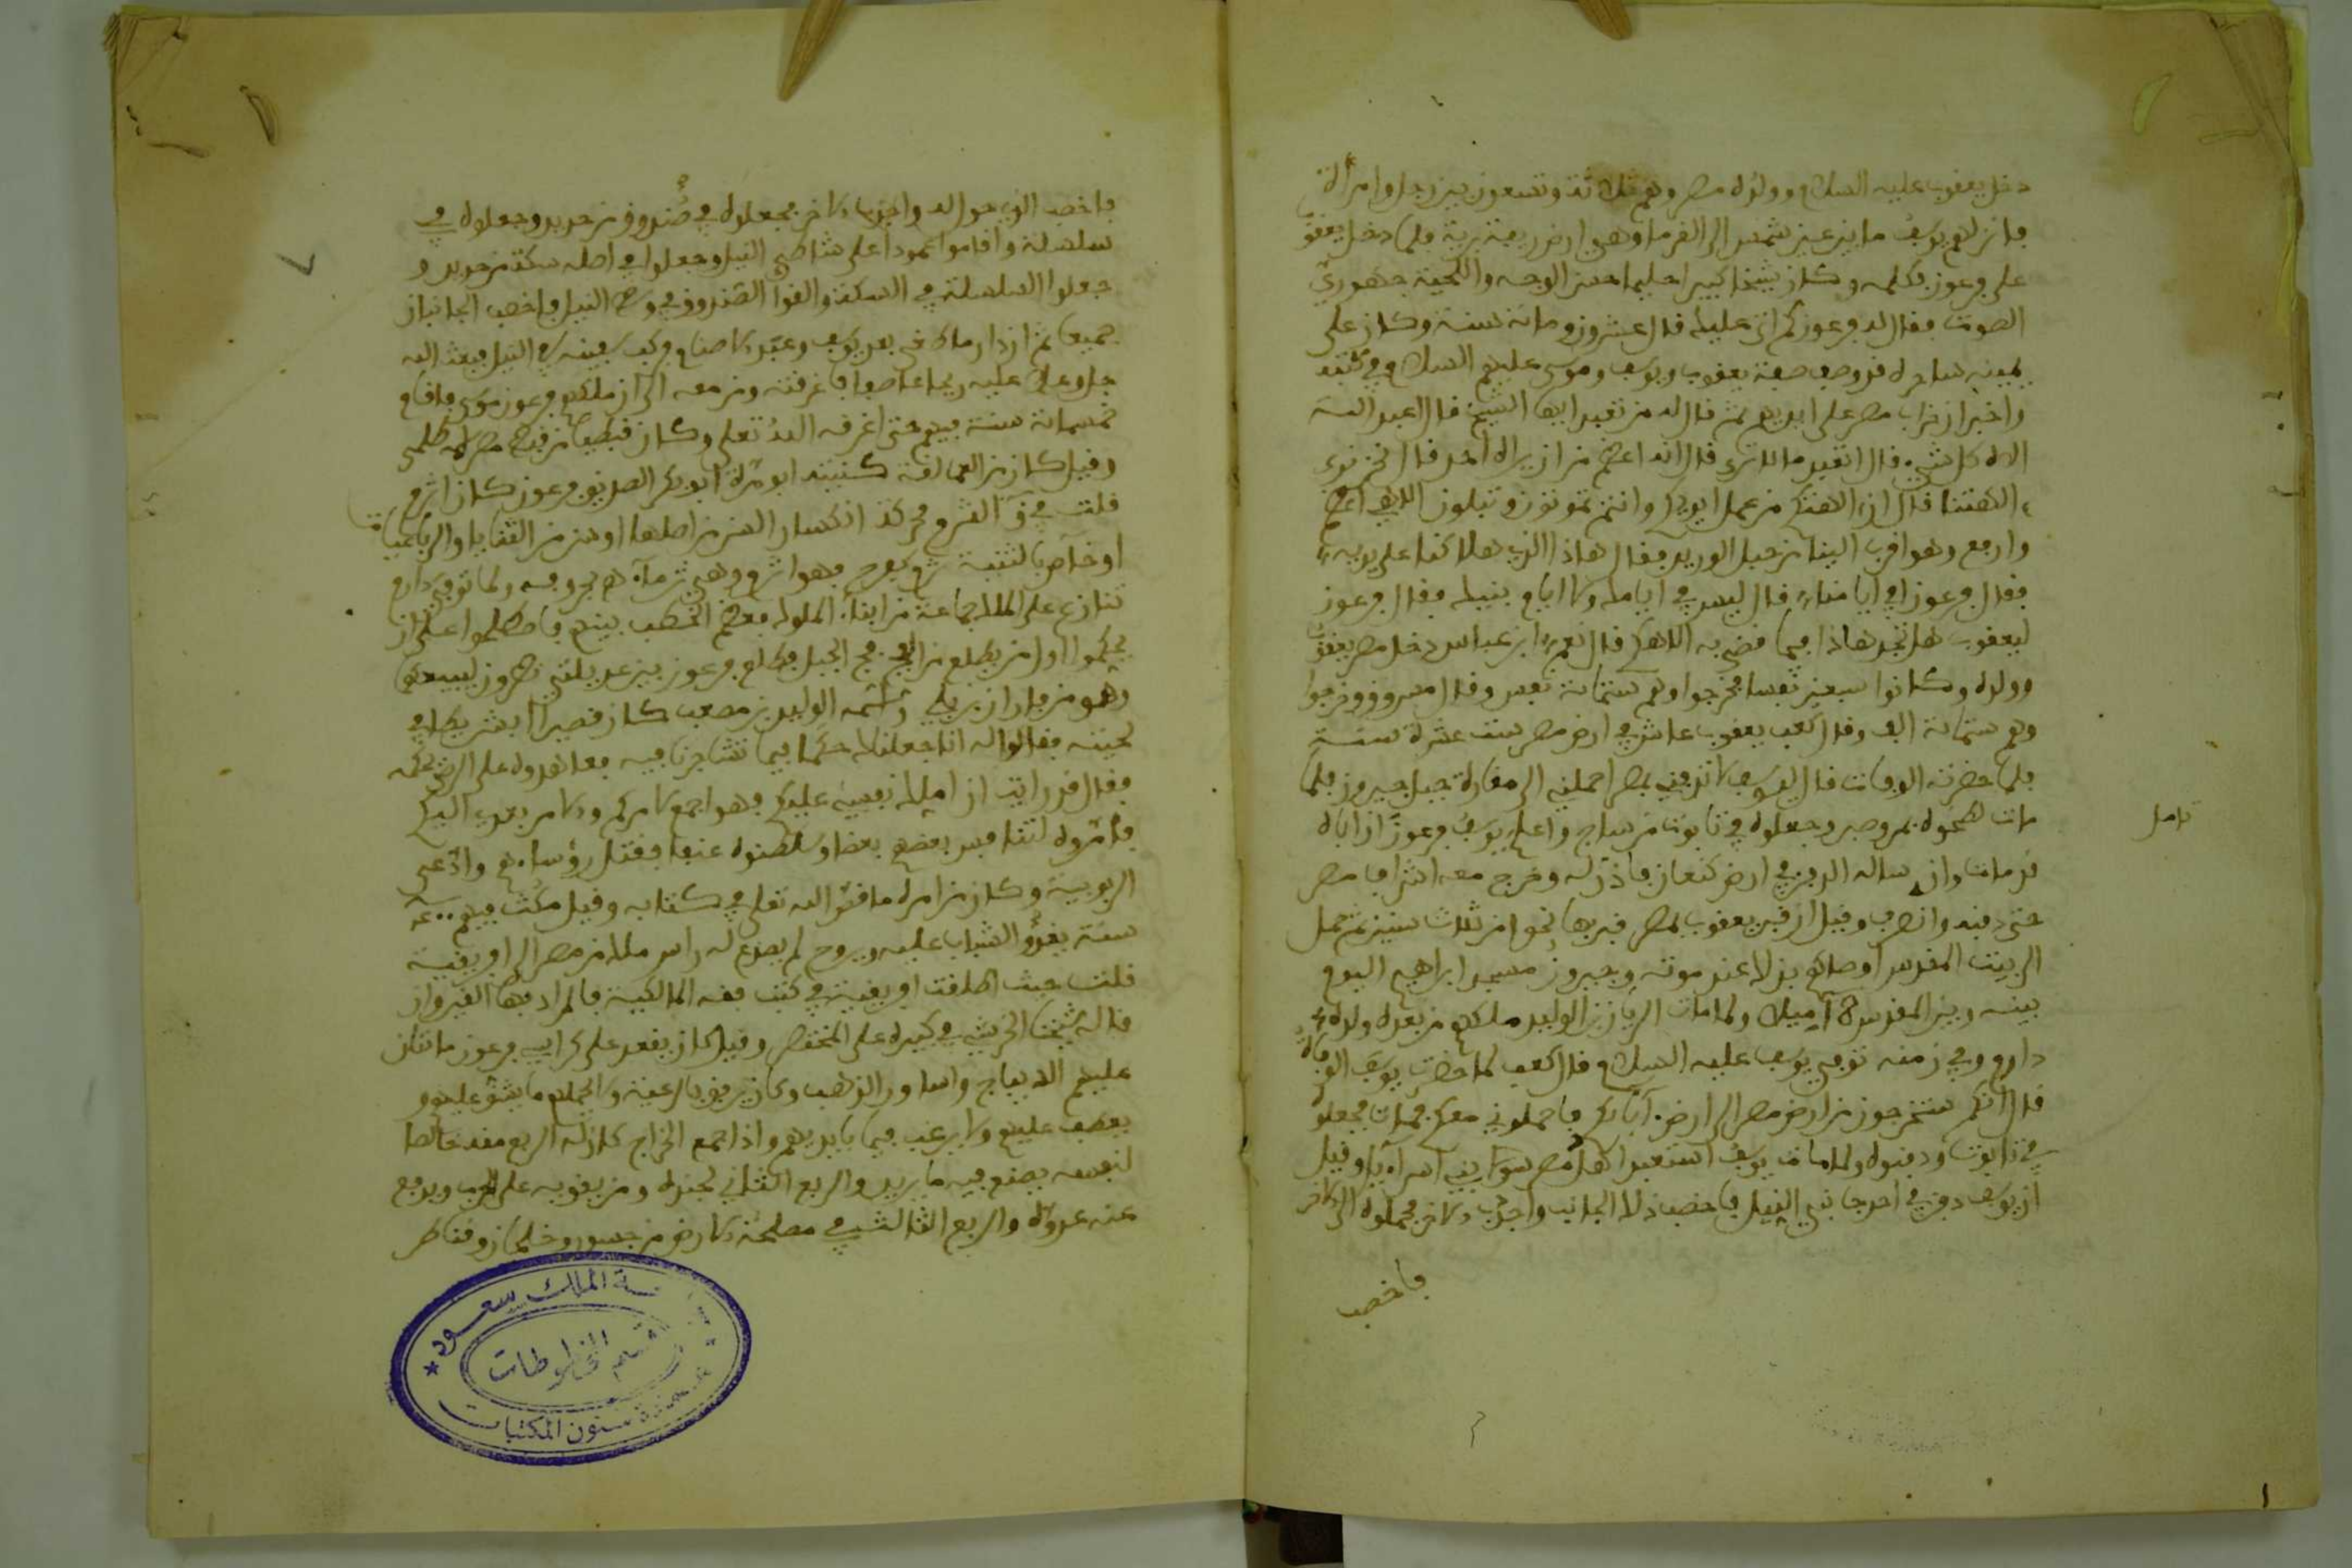 دخل يعقوب عليه السلام وولده مصر وهم ثلاثة وتسعون بين رجل وامرأة
فانزلهم يوسف ما بين عين شمس الى الفرما وهي ارض ريفية برية فلما دخل يعقوب
على فرعون فكلمه وكان شيخا كبيرا حليما حسن الوجه واللحية جهوري
الصوت فقال له فرعون كم اتى عليك قال عشرون ومائة سنة وكان على
يمينه ساحره قد وصف صفة يعقوب ويوسف وموسى عليهم السلام في كتبه
واخبر ان خراب مصر على ايديهم ثم قال له من تعبد ايها الشيخ قال اعبد الله
اله كل شيء قال اتعبد ما لا ترى قال انه اعظم من ان يراه احد قال نحن نرى
الهتنا قال ان الهتكم من عمل ايديكم وانتم تموتون وتبلون الاهي اعظم
وارفع وهو اقرب الينا من حبل الوريد فقال هاذا الذي هلاكنا على يديه
فقال فرعون افي ايامنا قال ليس في ايامك ولا ايام بنيك فقال فرعون
ليعقوب هل تجد هاذا فيما قضى به الاهكم قال نعم ابن عباس دخل مصر يعقوب
وولده وكانوا سبعين نفسا فخرجوا وهم ستمائة نفس وقال مسروق وخرجوا
وهم ستمائة الف وقال كعب يعقوب عاش في ارض مصر ست عشرة سنة
فلما حضرته الوفات قال ليوسف لا تدفني بمصر احملني الى مغارة جبل جبرون فلما
مات لطخوه بمر وصبر وجعلوه في تابوت من ساج واعلم يوسف فرعون ان اباه
قد مات وان ساله الدفن في ارض كنعان فاذن له وخرج معه اشراف مصر
حتى دفنه وانصرف وقيل ان قبر يعقوب بمصر قبر بها نحوا من ثلاث سنين ثم حمل
الى بيت المقدس اوصاهم بذلك عند موته وجبرون مسجد ابراهيم اليوم
بينه وبين المقدس ١٨ ميلا ولما مات الريان بن الوليد ملكهم من بعده ولده
دارم وفي زمنه توفي يوسف عليه السلام قال كعب لما حضرت يوسف الوفاة
قال انكم ستخرجون من ارض مصر الى ارض آبائكم فاحملوني معكم فمات فجعلوه
في تابوت ودفنوه ولما مات يوسف استعبد اهل مصر بني اسراءيل وقيل
ان يوسف دفن في احد جانبي النيل فاخصب ذلك الجانب واجدب الاخر فحملوه الى الاخر
فاخصب
تامل
فاخصب الذي حول اليه واجدب الاخر فجعلوه في صندوق من حديد وجعلوه في
سلسلة واقاموا عمودا على شاطئ النيل وجعلوا في اصله سكة من حديد و
جعلوا السلسلة في السكة والقوا الصندوق في وسط النيل فاخصب الجانبان
جميعا ثم ان دارما طغى بعد يوسف وعبد الاصنام وركب سفينة في النيل فبعث الله
جل وعلا عليه ريحا عاصفا فاغرقته ومن معه الى ان ملكهم فرعون موسى فاقام
خمسمائة سنة فيهم حتى اغرقه الله تعلى وكان قبطيا من قبط مصر اسمه طلمى
وقيل كان من العمالقة كنيته ابو مرة ابو بكر الصديق فرعون كان اثرم
قلت في ق الثرم محركة انكسار السن من اصلها او سن من الثنايا والرباعيات
او خاص بالثنية ثرم كفرح فهو اثرم وهي ثرماء هـ بحروفه ولما توفي دارم
تنازع على الملك جماعة من ابناء الملوك فعظم الخطب بينهم فاصطلحوا على ان
يحكموا اول من يطلع من الفج فج الجبل فطلع فرعون بين عديلتي نطرون ليبيعهما
وهو من فاران بن بلي واسمه الوليد بن مصعب كان قصيرا ابرش يطا في
لحيته فقالوا له انا جعلناك حكما فيما تشاجرنا فيه فعاهدوه على الرضى بحكمه
فقال قد رايت ان املك نفسي عليكم فهو اجمع لامركم والامر بعد اليكم
فامروه لتنافس بعضهم بعضا وسلطنوه عنفا فقتل رؤساءهم وادعى
الربوبية وكان من امره ما قص الله تعلى في كتابه وقيل مكث فيهم ٤٠٠
سنة يغدو الشباب عليه ويروح لم يصدع له راس ملك من مصر الى افريقية
قلت حيث اطلقت افريقية في كتب فقه المالكية فالمراد بها القيروان
قاله شيخنا الخرشي في كبيره على المختصر وقيل كان يقعد على كراسي فرعون مائتان
عليهم الديباج واساور الذهب وكان يرفق بالرعية ولا يحملهم ما يشق عليهم و
يعطف عليهم ولا يرغب فيما بايديهم واذا جمع الخراج كان له الربع منه خالصا
لنفسه يصنع فيه ما يريد والربع الثاني لجنده ومن يقوى به على الحرب ويدفع
عنه عدوه والربع الثالث في مصلحة الارض من جسور وخلجان وقناطر
جامعة الملك سعود
قسم المخطوطات
عمادة شئون المكتبات